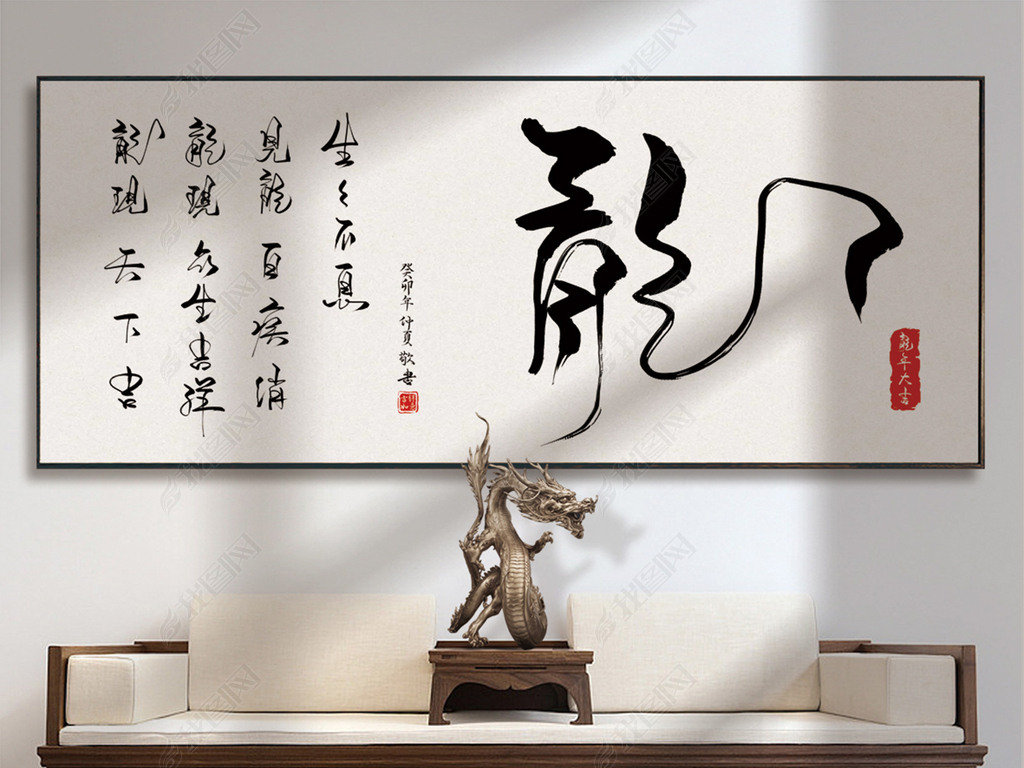 龍
龍現天下吉
龍現众生吉祥
見龍百疾消
生々不息
癸卯年仲夏敬書
龍年大吉
我图网